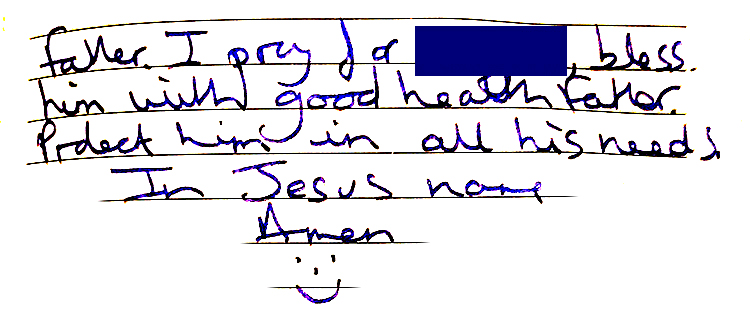 father. I pray for , bless.
him with good health Father.
Protect him in all his needs,
In Jesus name
Amen